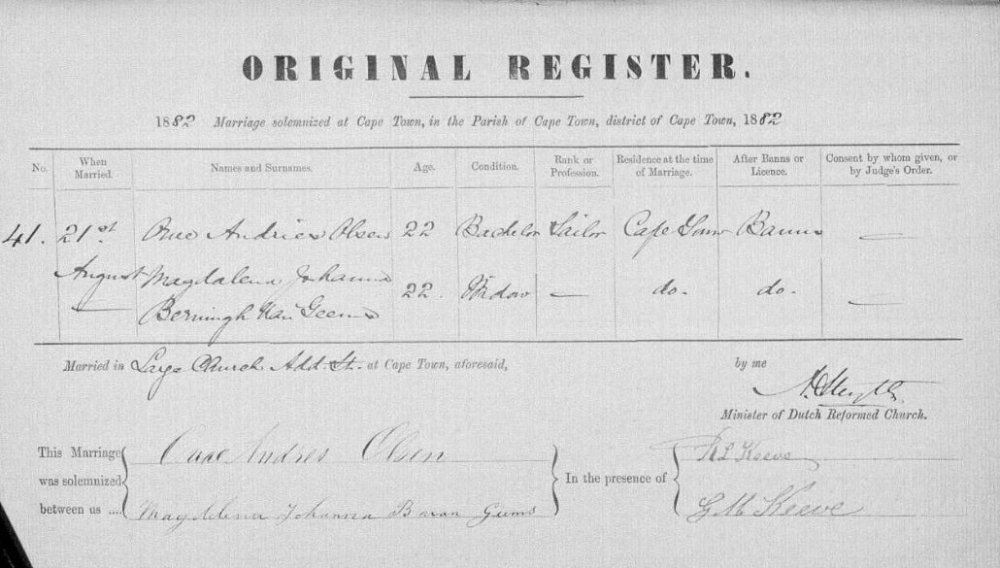 ORIGINAL REGISTER.
1882 Marriage solemnized at Cape Town, in the Parish of Cape Town, district of Cape Town, 1882
No. When Married. Names and Surnames. Age. Condition. Rank or Profession. Residence at the time of Marriage. After Banns or Licence. Consent by whom given, or by Judge's Order.
41. 21st Andries Olsen 22 Bachelor Sailor Cape Town Banns —
August Magdalena Johanna 22. Widow — do. do. —
— Geems
Married in Large Church Add. St. at Cape Town, aforesaid, by me
Minister of Dutch Reformed Church.
This Marriage was solemnized between us .... Andres Olsen
Magdlena Johanna Geems
In the presence of Keeve
G M Keeve